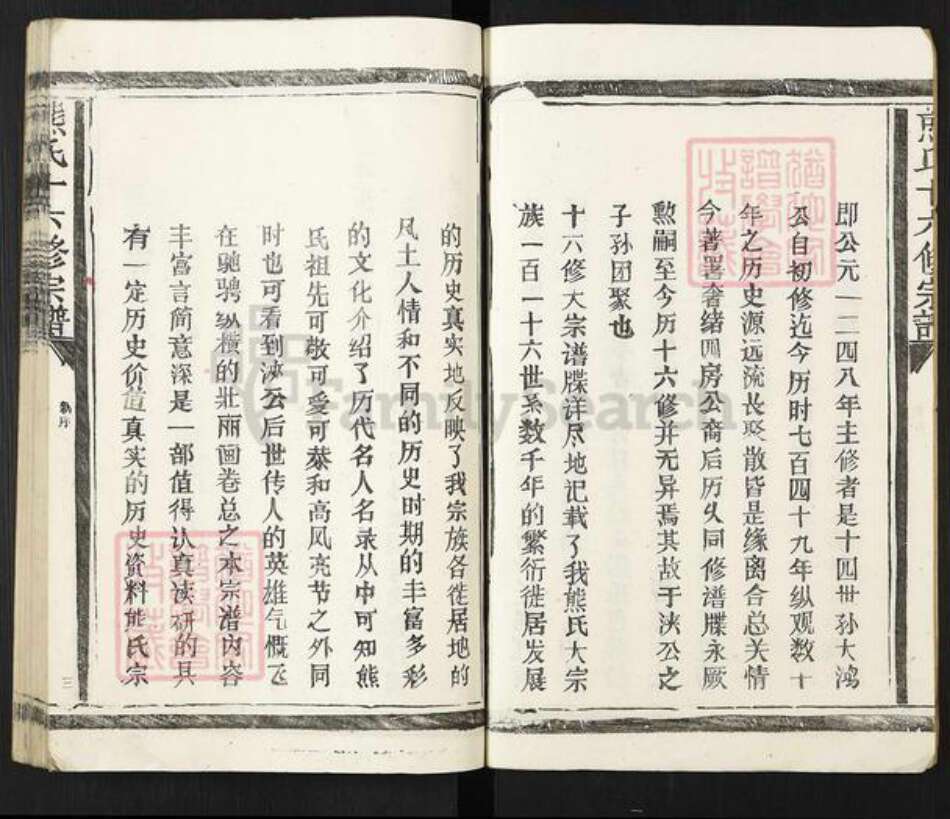 熊氏十六修宗譜
即公元一二四八年主修者是十四世孙大鸿
公自初修迄今历时七百四十九年纵观数十
年之历史源远流长聚散皆是缘离合总关情
今著署奢绪四房公裔后历久同修谱牒永厥
勲嗣至今历十六修并无异焉其故于浃公之
子孙团聚也
十六修大宗谱牒详尽地记载了我熊氏大宗
族一百一十六世系数千年的繁衍徙居发展
的历史真实地反映了我宗族各徙居地的
风土人情和不同的历史时期的丰富多彩
的文化介绍了历代名人名录从中可知熊
氏祖先可敬可爱可恭和高风亮节之外同
时也可看到浃公后世传人的英雄气慨飞
在驰骋纵横的壮丽画卷总之本宗谱内容
丰富言简意深是一部值得认真读研的具
有一定历史价值真实的历史资料熊氏宗
熊氏十六修宗譜
三
FamilySearch